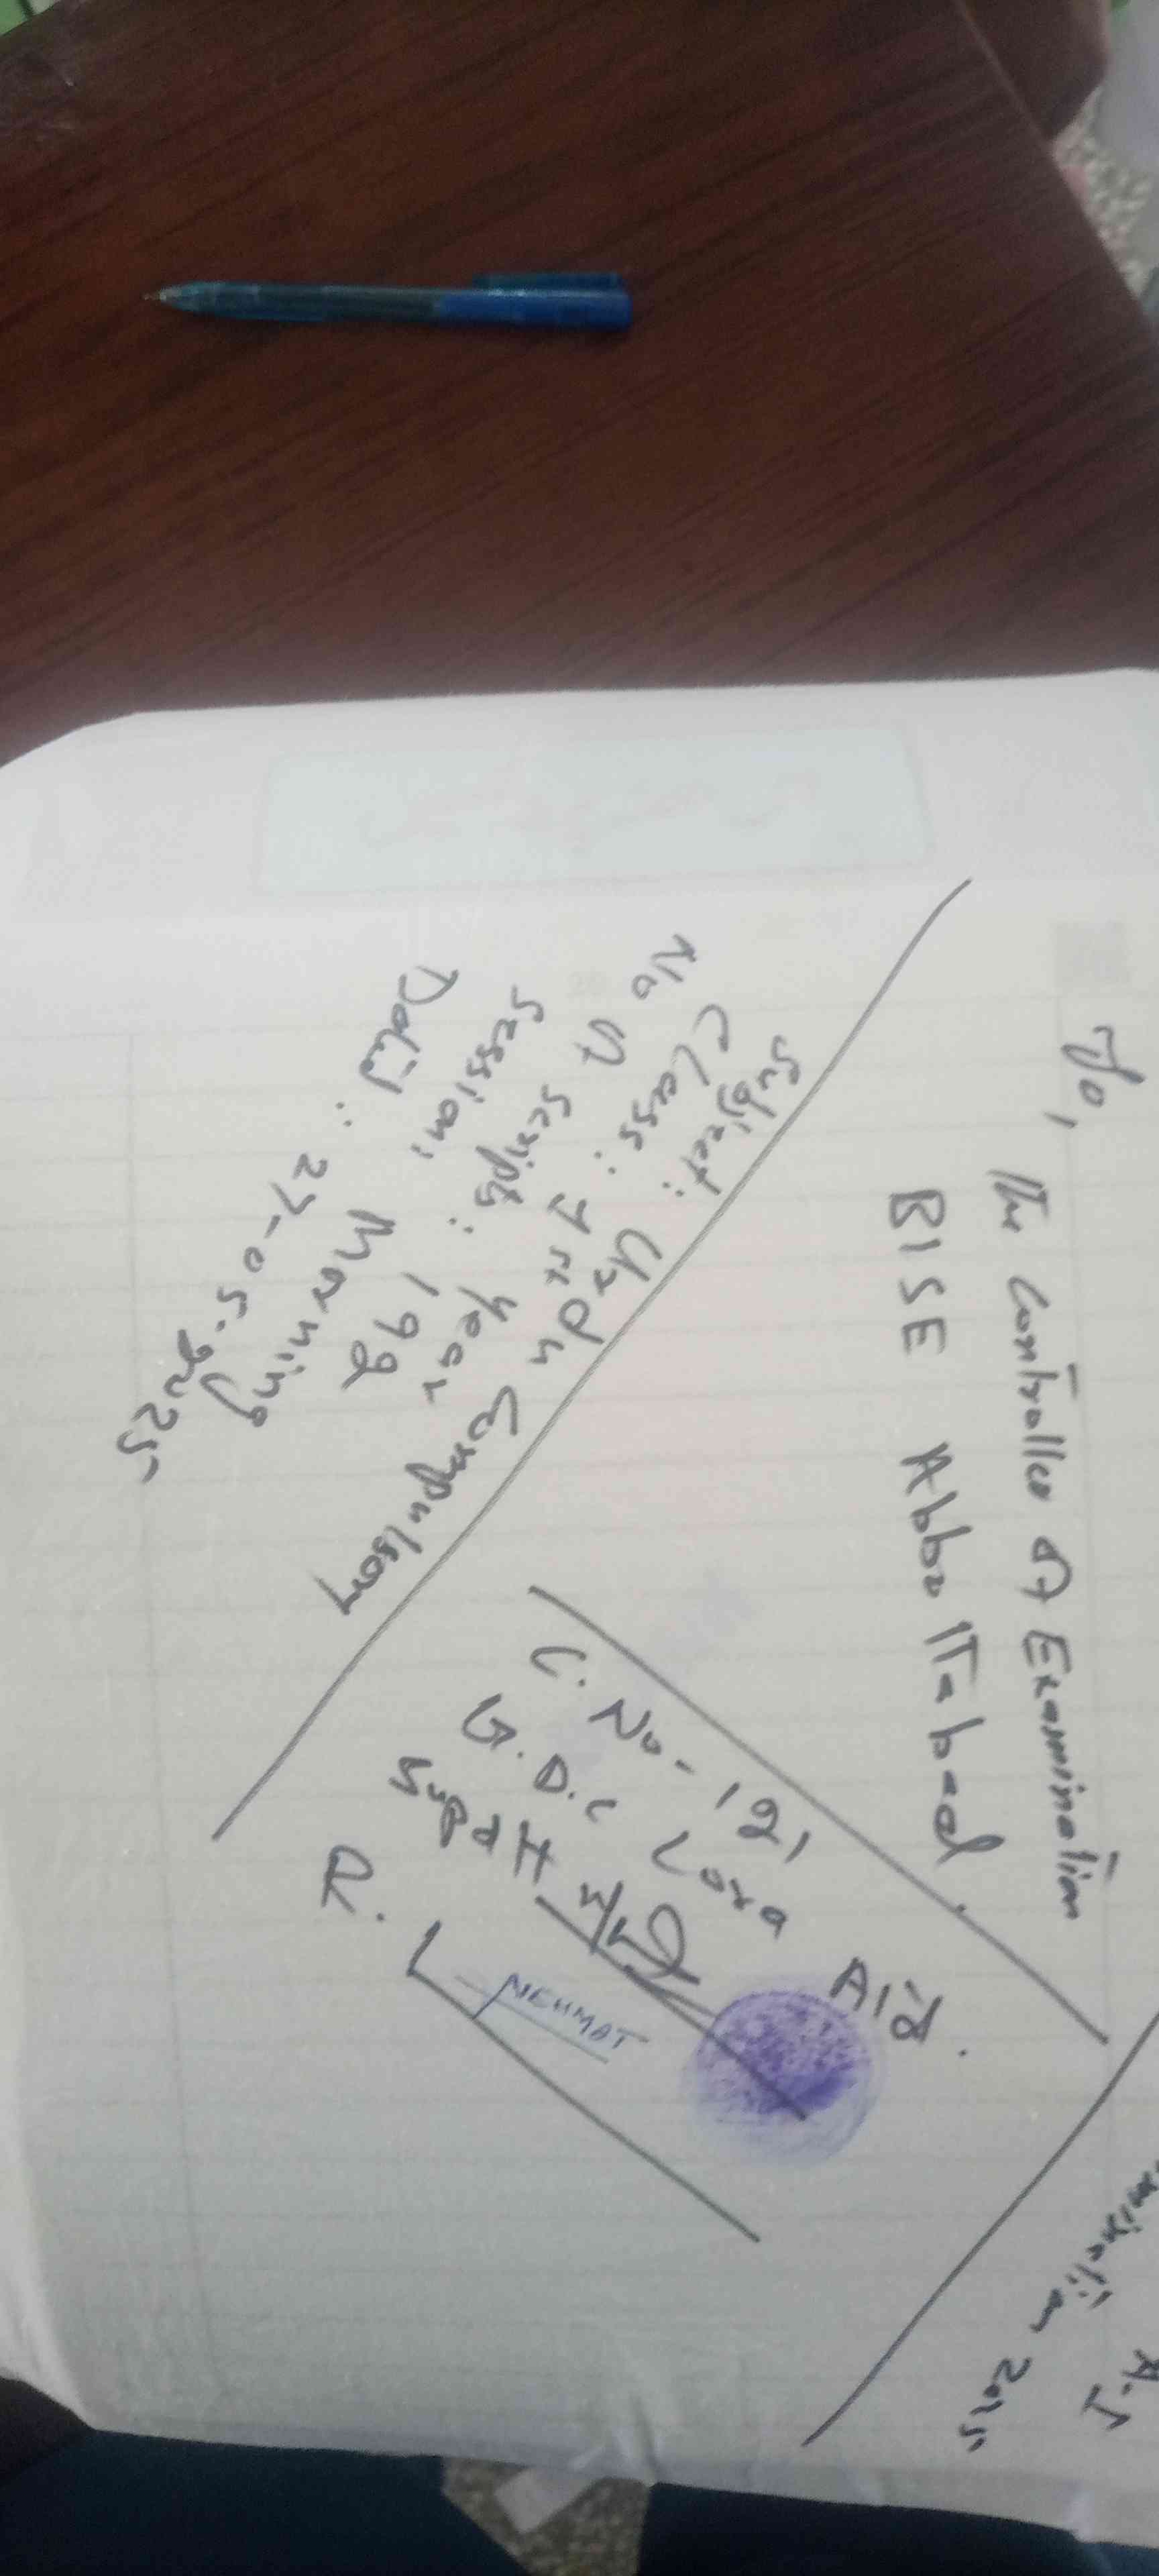 To,
The Controller of Examination
BISE Abbottabad
Subject: Urdu Compulsory
Class: 1st Year
No of Scripts: 192
Session: Morning
Dated: 27-05-2025
C. No-181
G.D.C Lora
A/d.
NEHMAT
A-I
2025